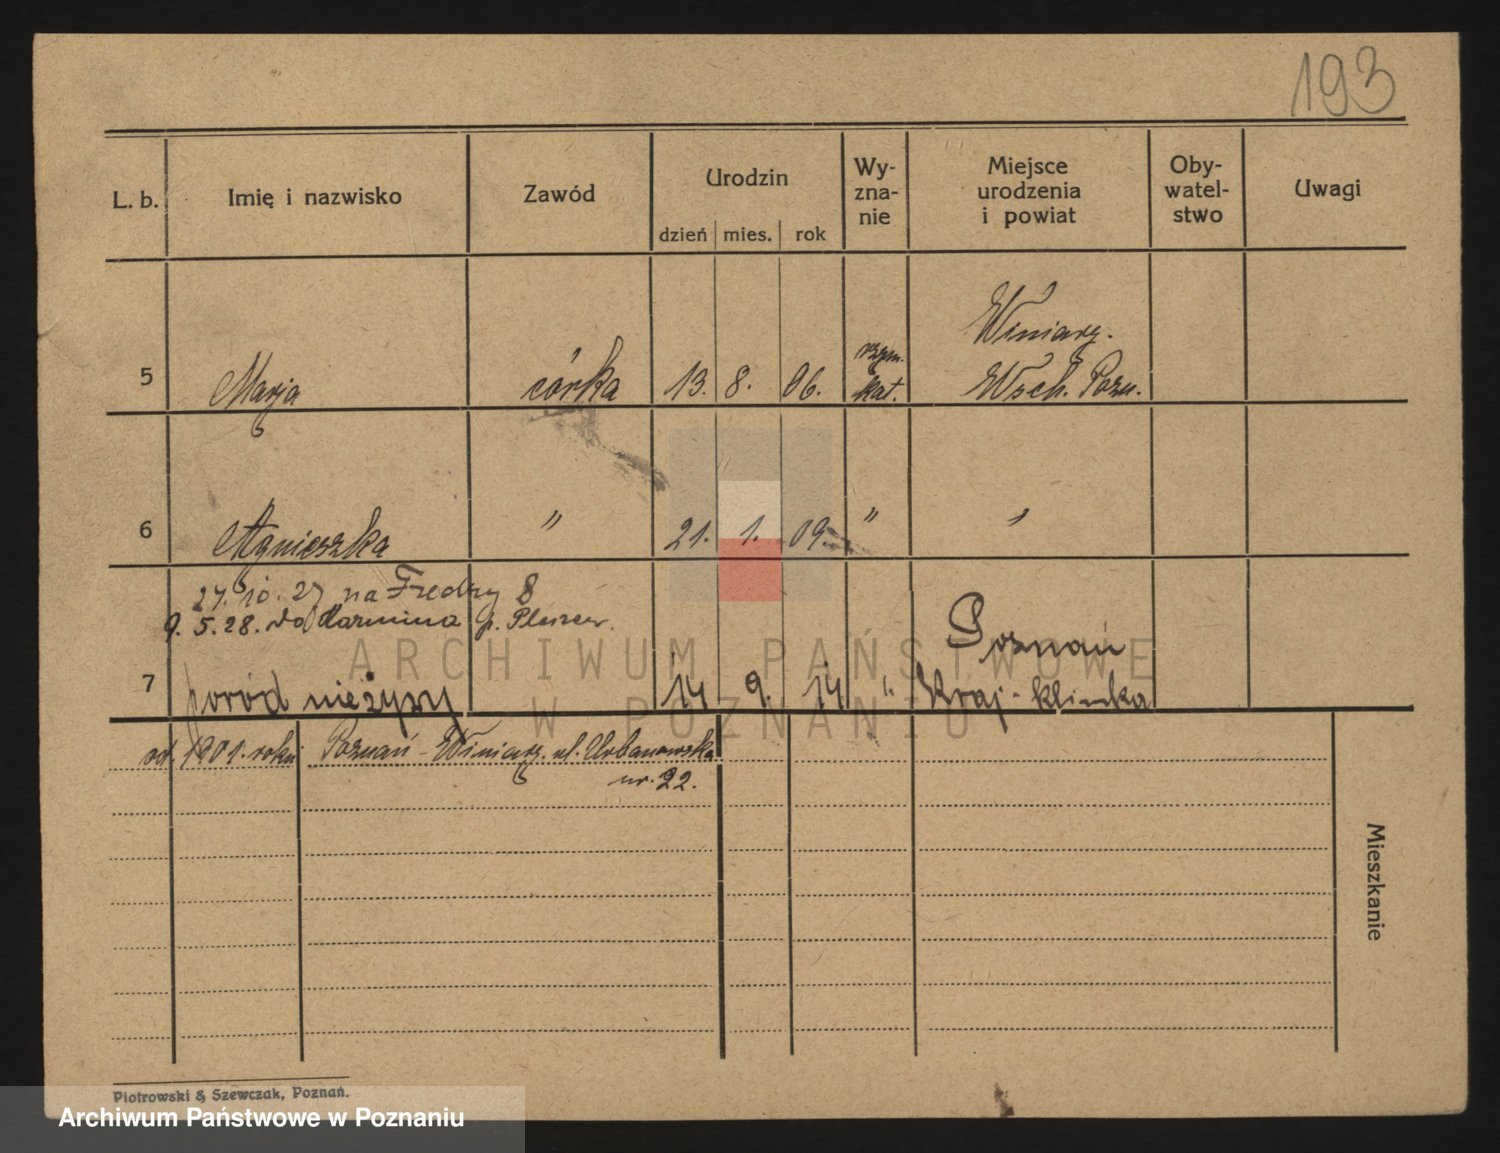 193
L. b.
Imię i nazwisko
Zawód
Urodzin
dzień mies. rok
Wy-
zna-
nie
Miejsce
urodzenia
i powiat
Oby-
watel-
stwo
Uwagi
Winiary.
5 Marja córka 13. 8. 06. rzym. kat. Wsch. Pozn.
6 Agnieszka " 21. 1. 09. " "
27. 10. 27 na Fredry 8
9. 5. 28. do Karmina p. Pleszew.
Poznań
7 poród nieżywy 14 9. 14 " Kraj-klinka
od. 1901. roku Poznań - Winiary. ul. Urbanowska
nr. 22.
Mieszkanie
Piotrowski & Szewczak, Poznań.
ARCHIWUM PAŃSTWOWE
W POZNANIU
Archiwum Państwowe w Poznaniu